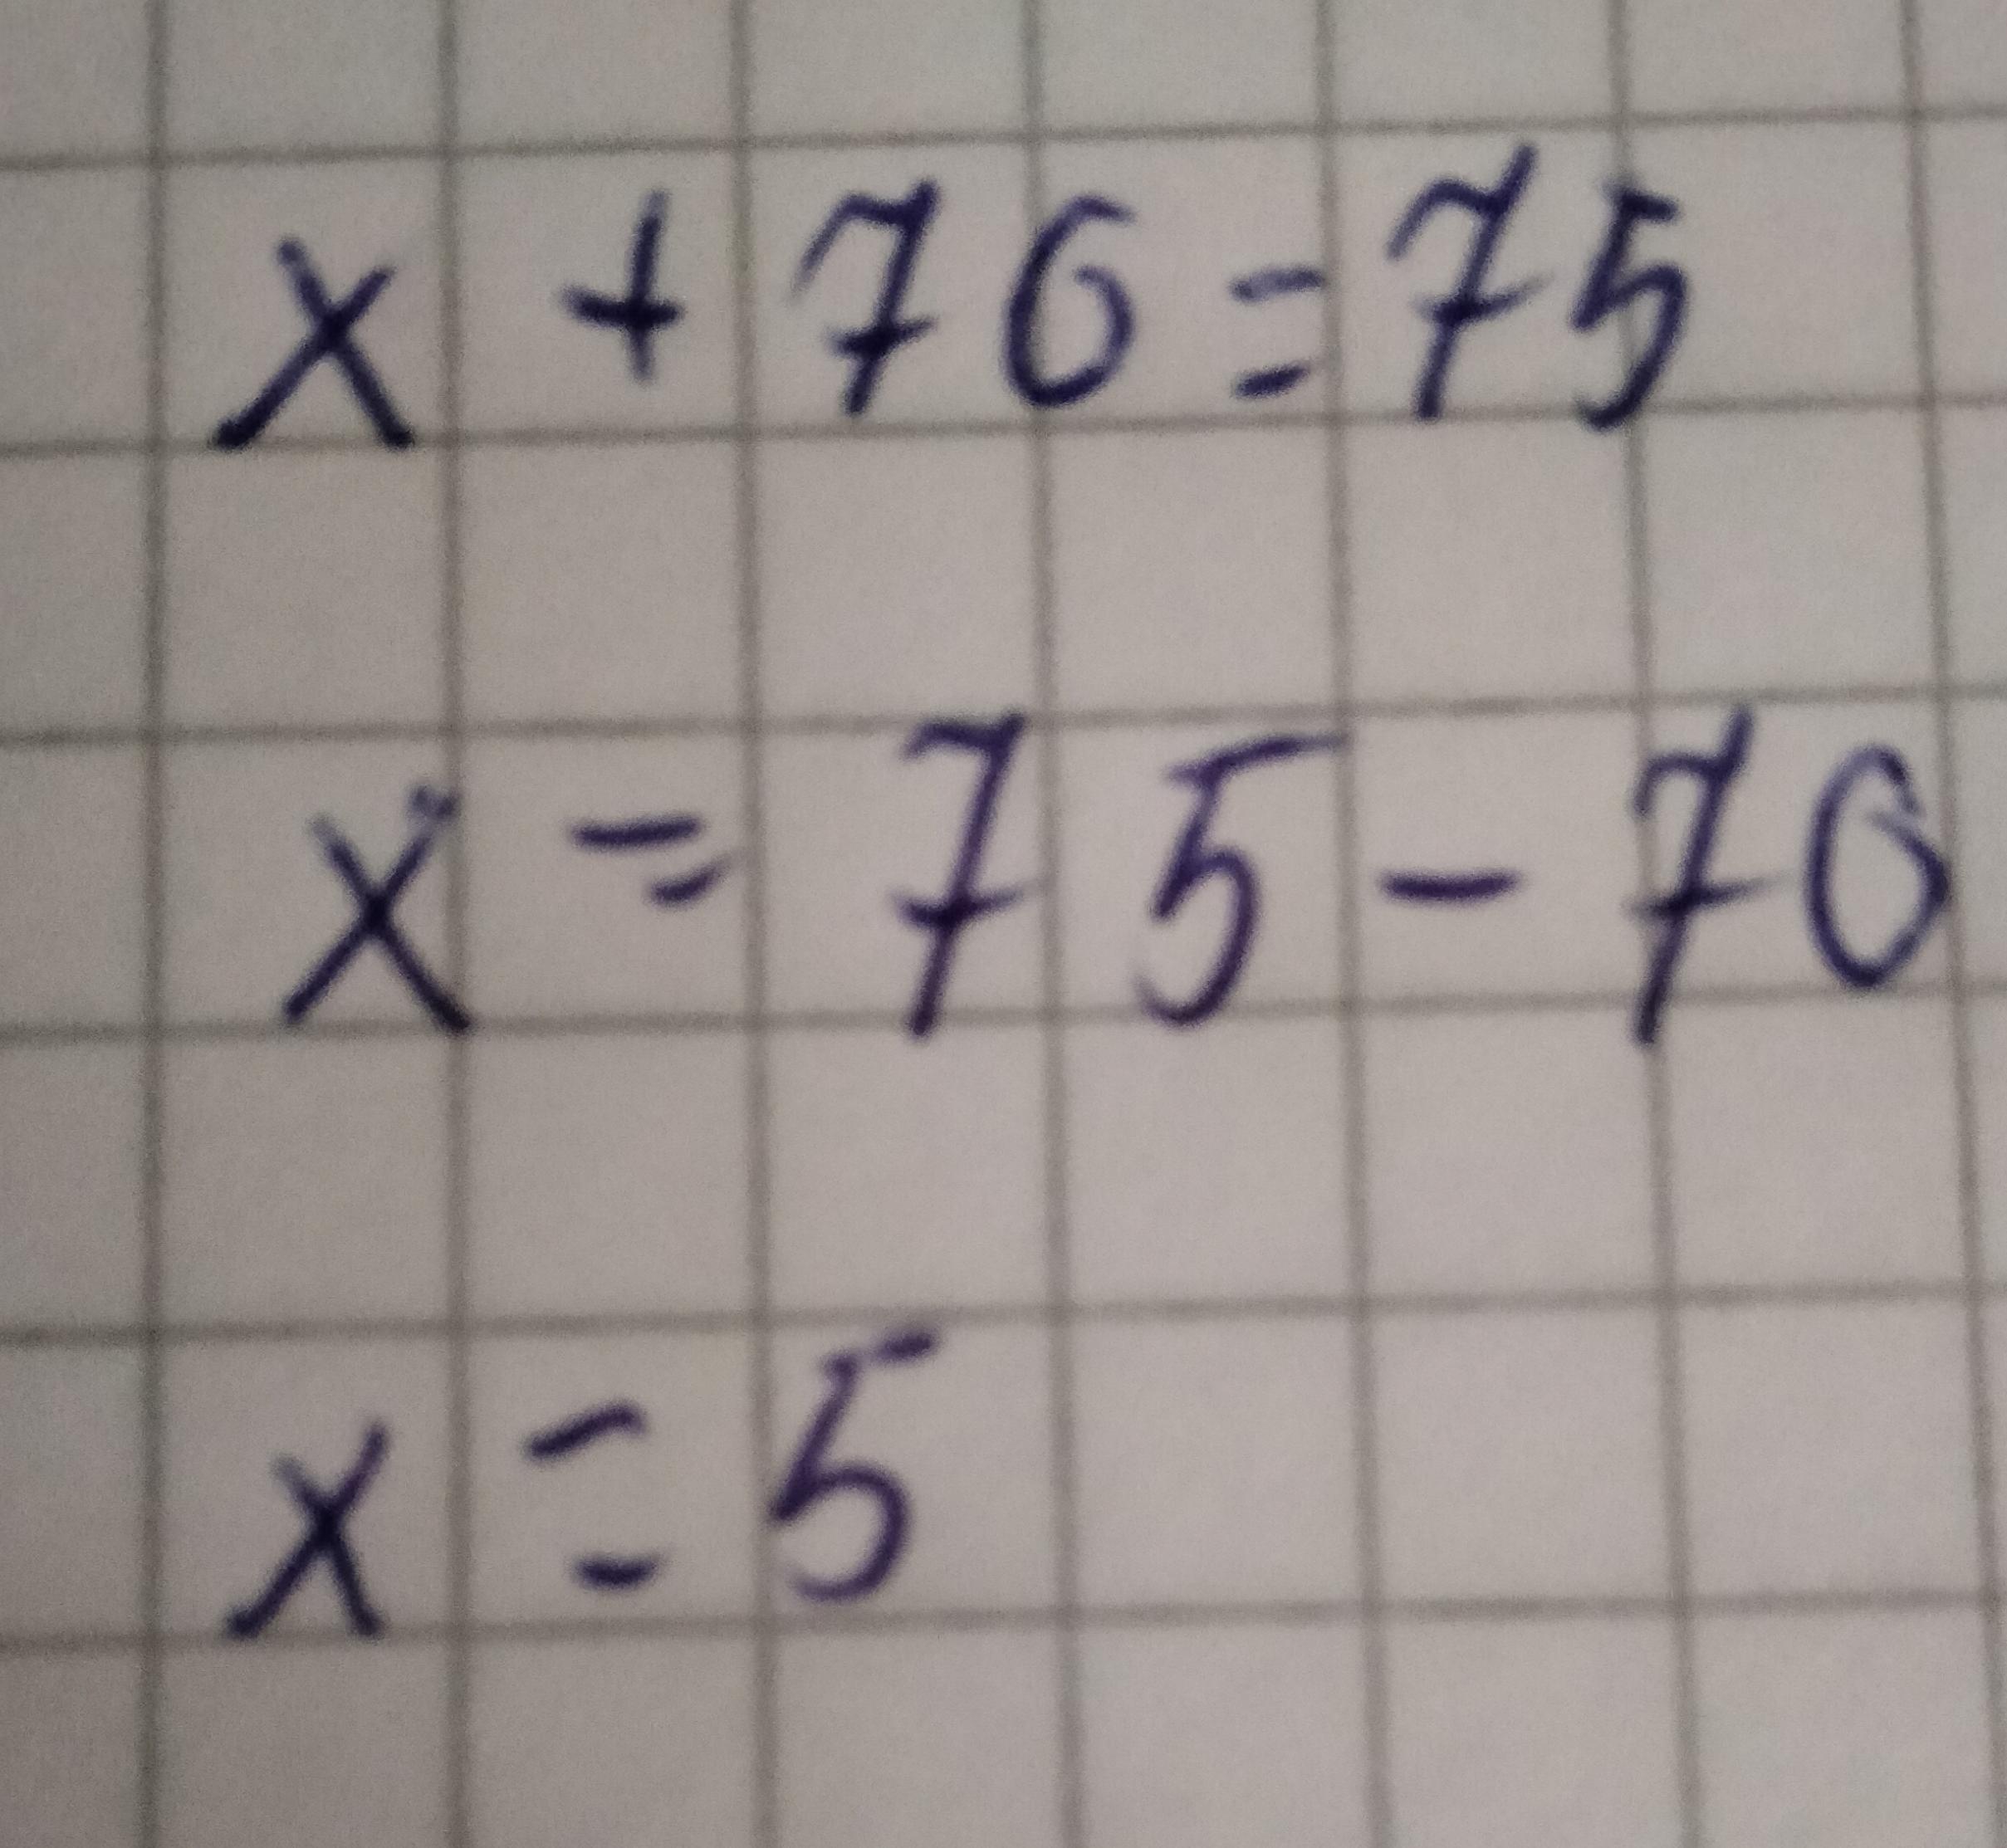 x + 70 = 75
x = 75 - 70
x = 5